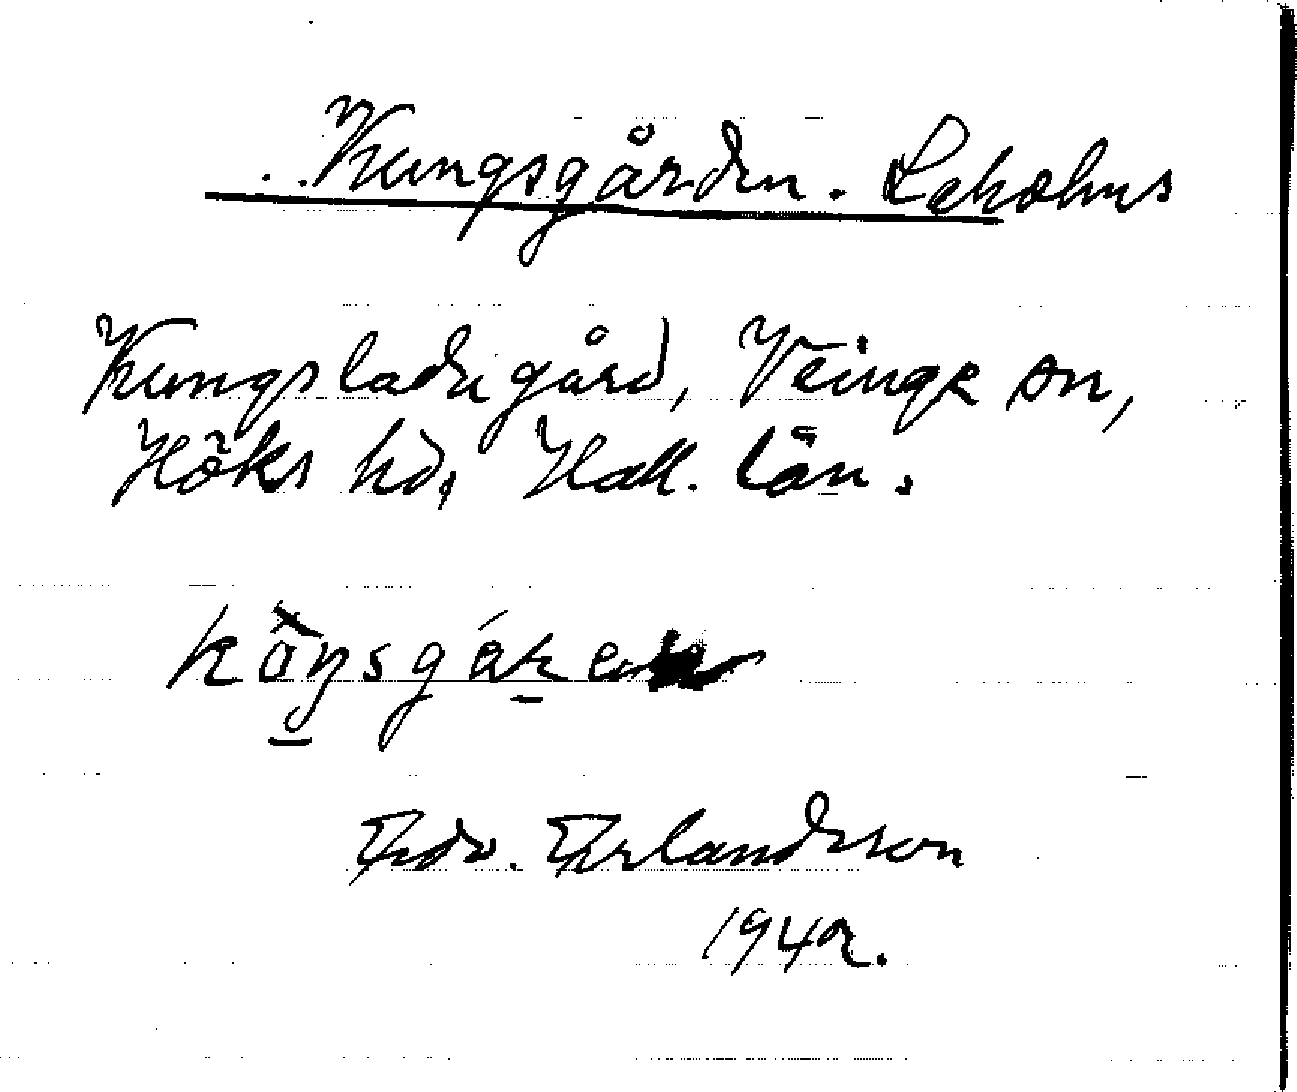 Kungsgården. Lekolms
Kungsladugård, Veinge sn,
Höks hd, Hall. län.
Edv. Erlandsson
1942.